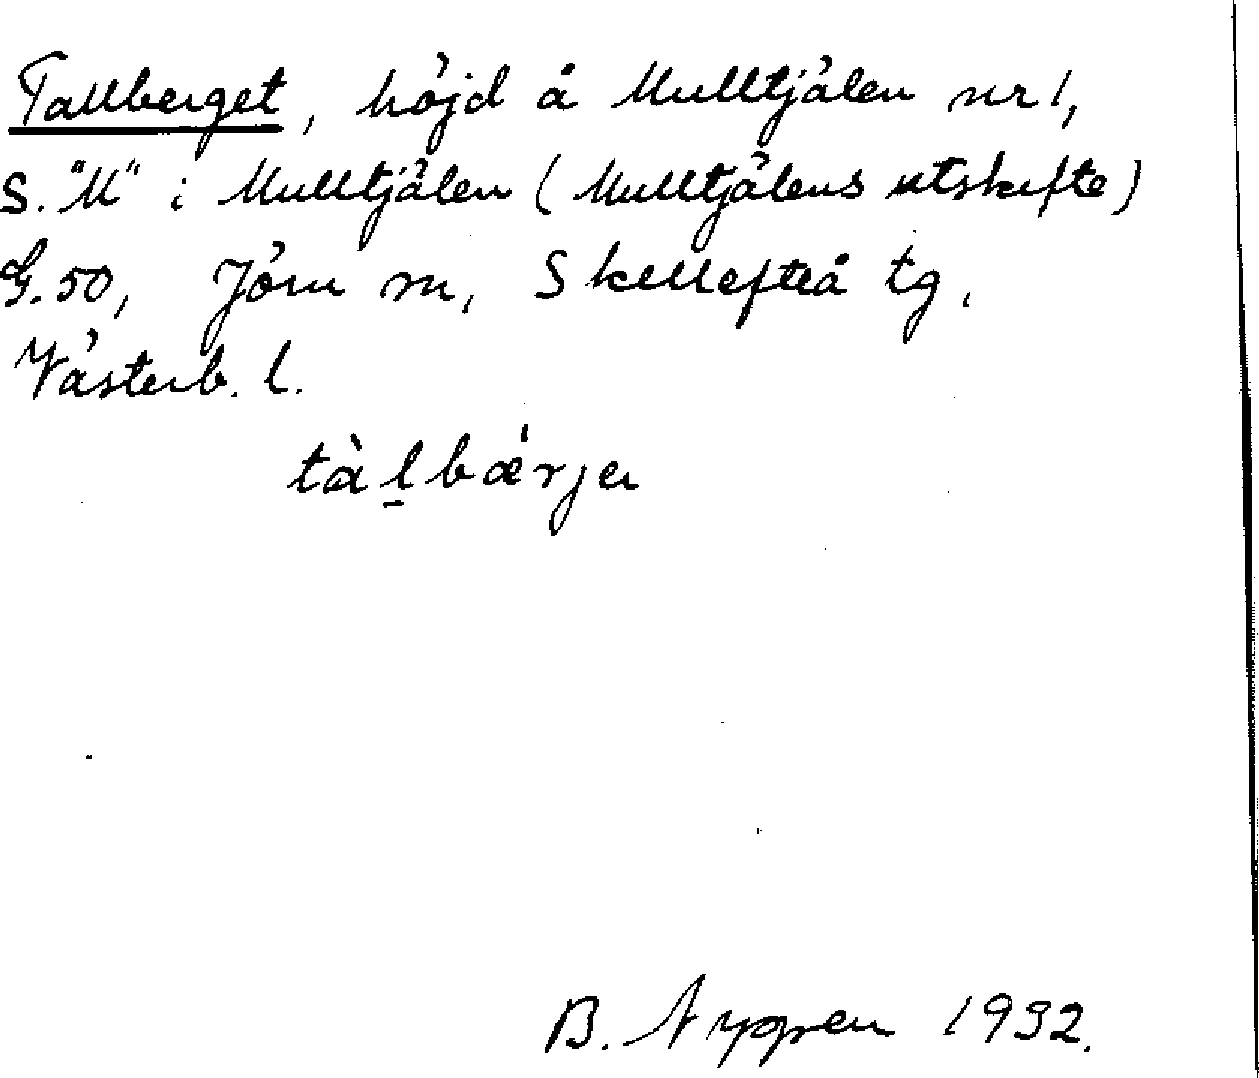 Tallberget, höjd å Mulltjälen nr 1,
S. "M" i Mulltjälen (Mulltjälens utskifte)
G.50, Jörn sn, Skellefteå tg,
Västerb. l.
tàl̠bæ̀rjer
B. Nygren 1932.